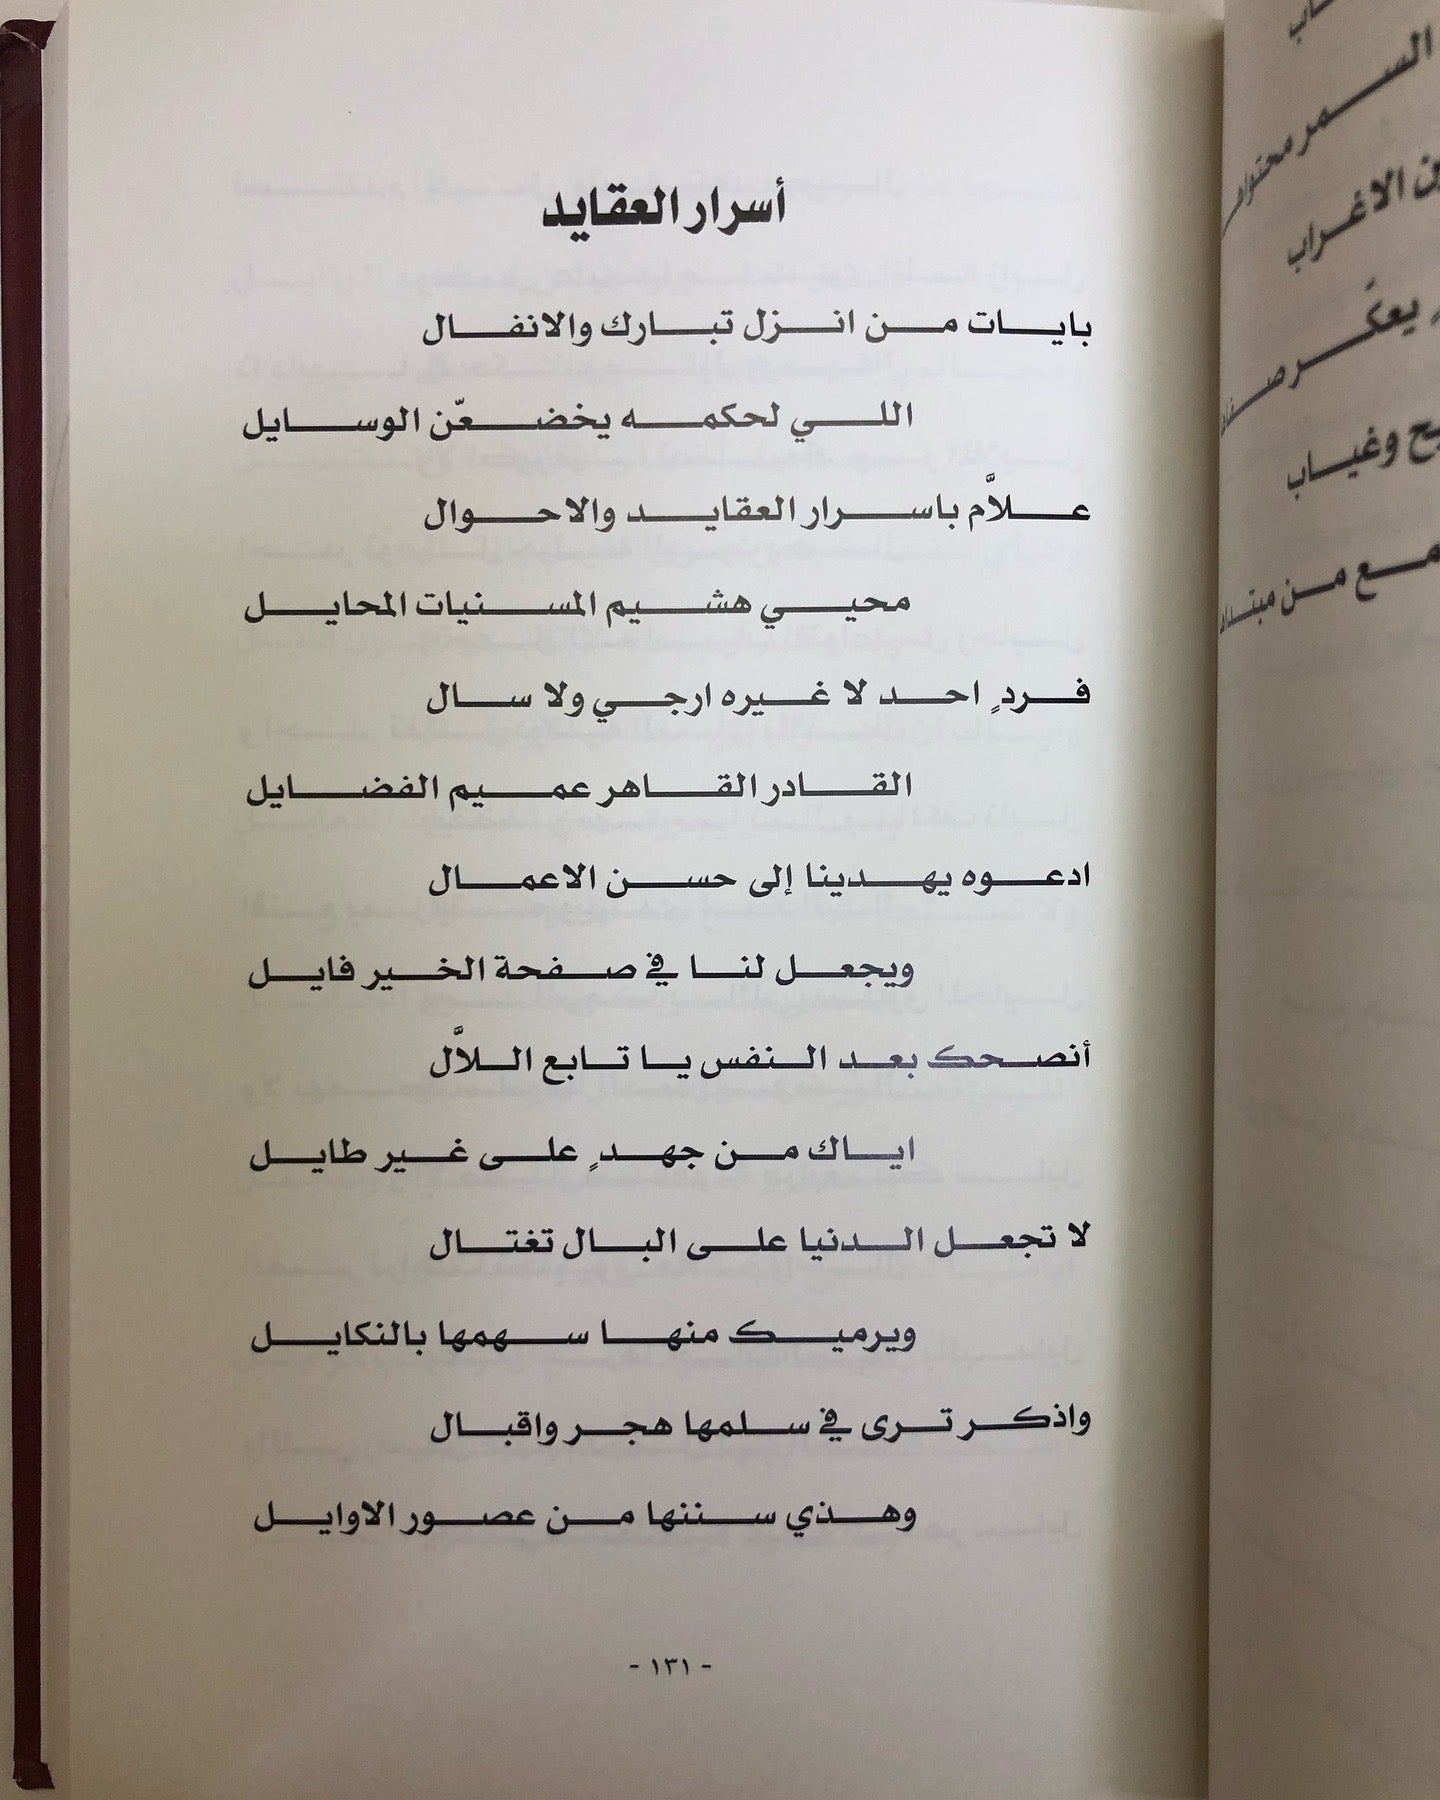 أسرار العقايد
بايات من انزل تبارك والانفال
اللي لحكمه يخضعّن الوسايل
علاَّم باسرار العقايد والاحوال
محيي هشيم المسنيات المحايل
فردٍ احد لا غيره ارجي ولا سال
القادر القاهر عميم الفضايل
ادعوه يهدينا إلى حسن الاعمال
ويجعل لنا في صفحة الخير فايل
أنصحك بعد النفس يا تابع اللاَّل
اياك من جهدٍ على غير طايل
لا تجعل الدنيا على البال تغتال
ويرميك منها سهمها بالنكايل
واذكر ترى في سلمها هجر واقبال
وهذي سننها من عصور الاوايل
- ١٣١ -
السمر محتواه
ن الاغراب
يعكّر
ح وغياب
مع من